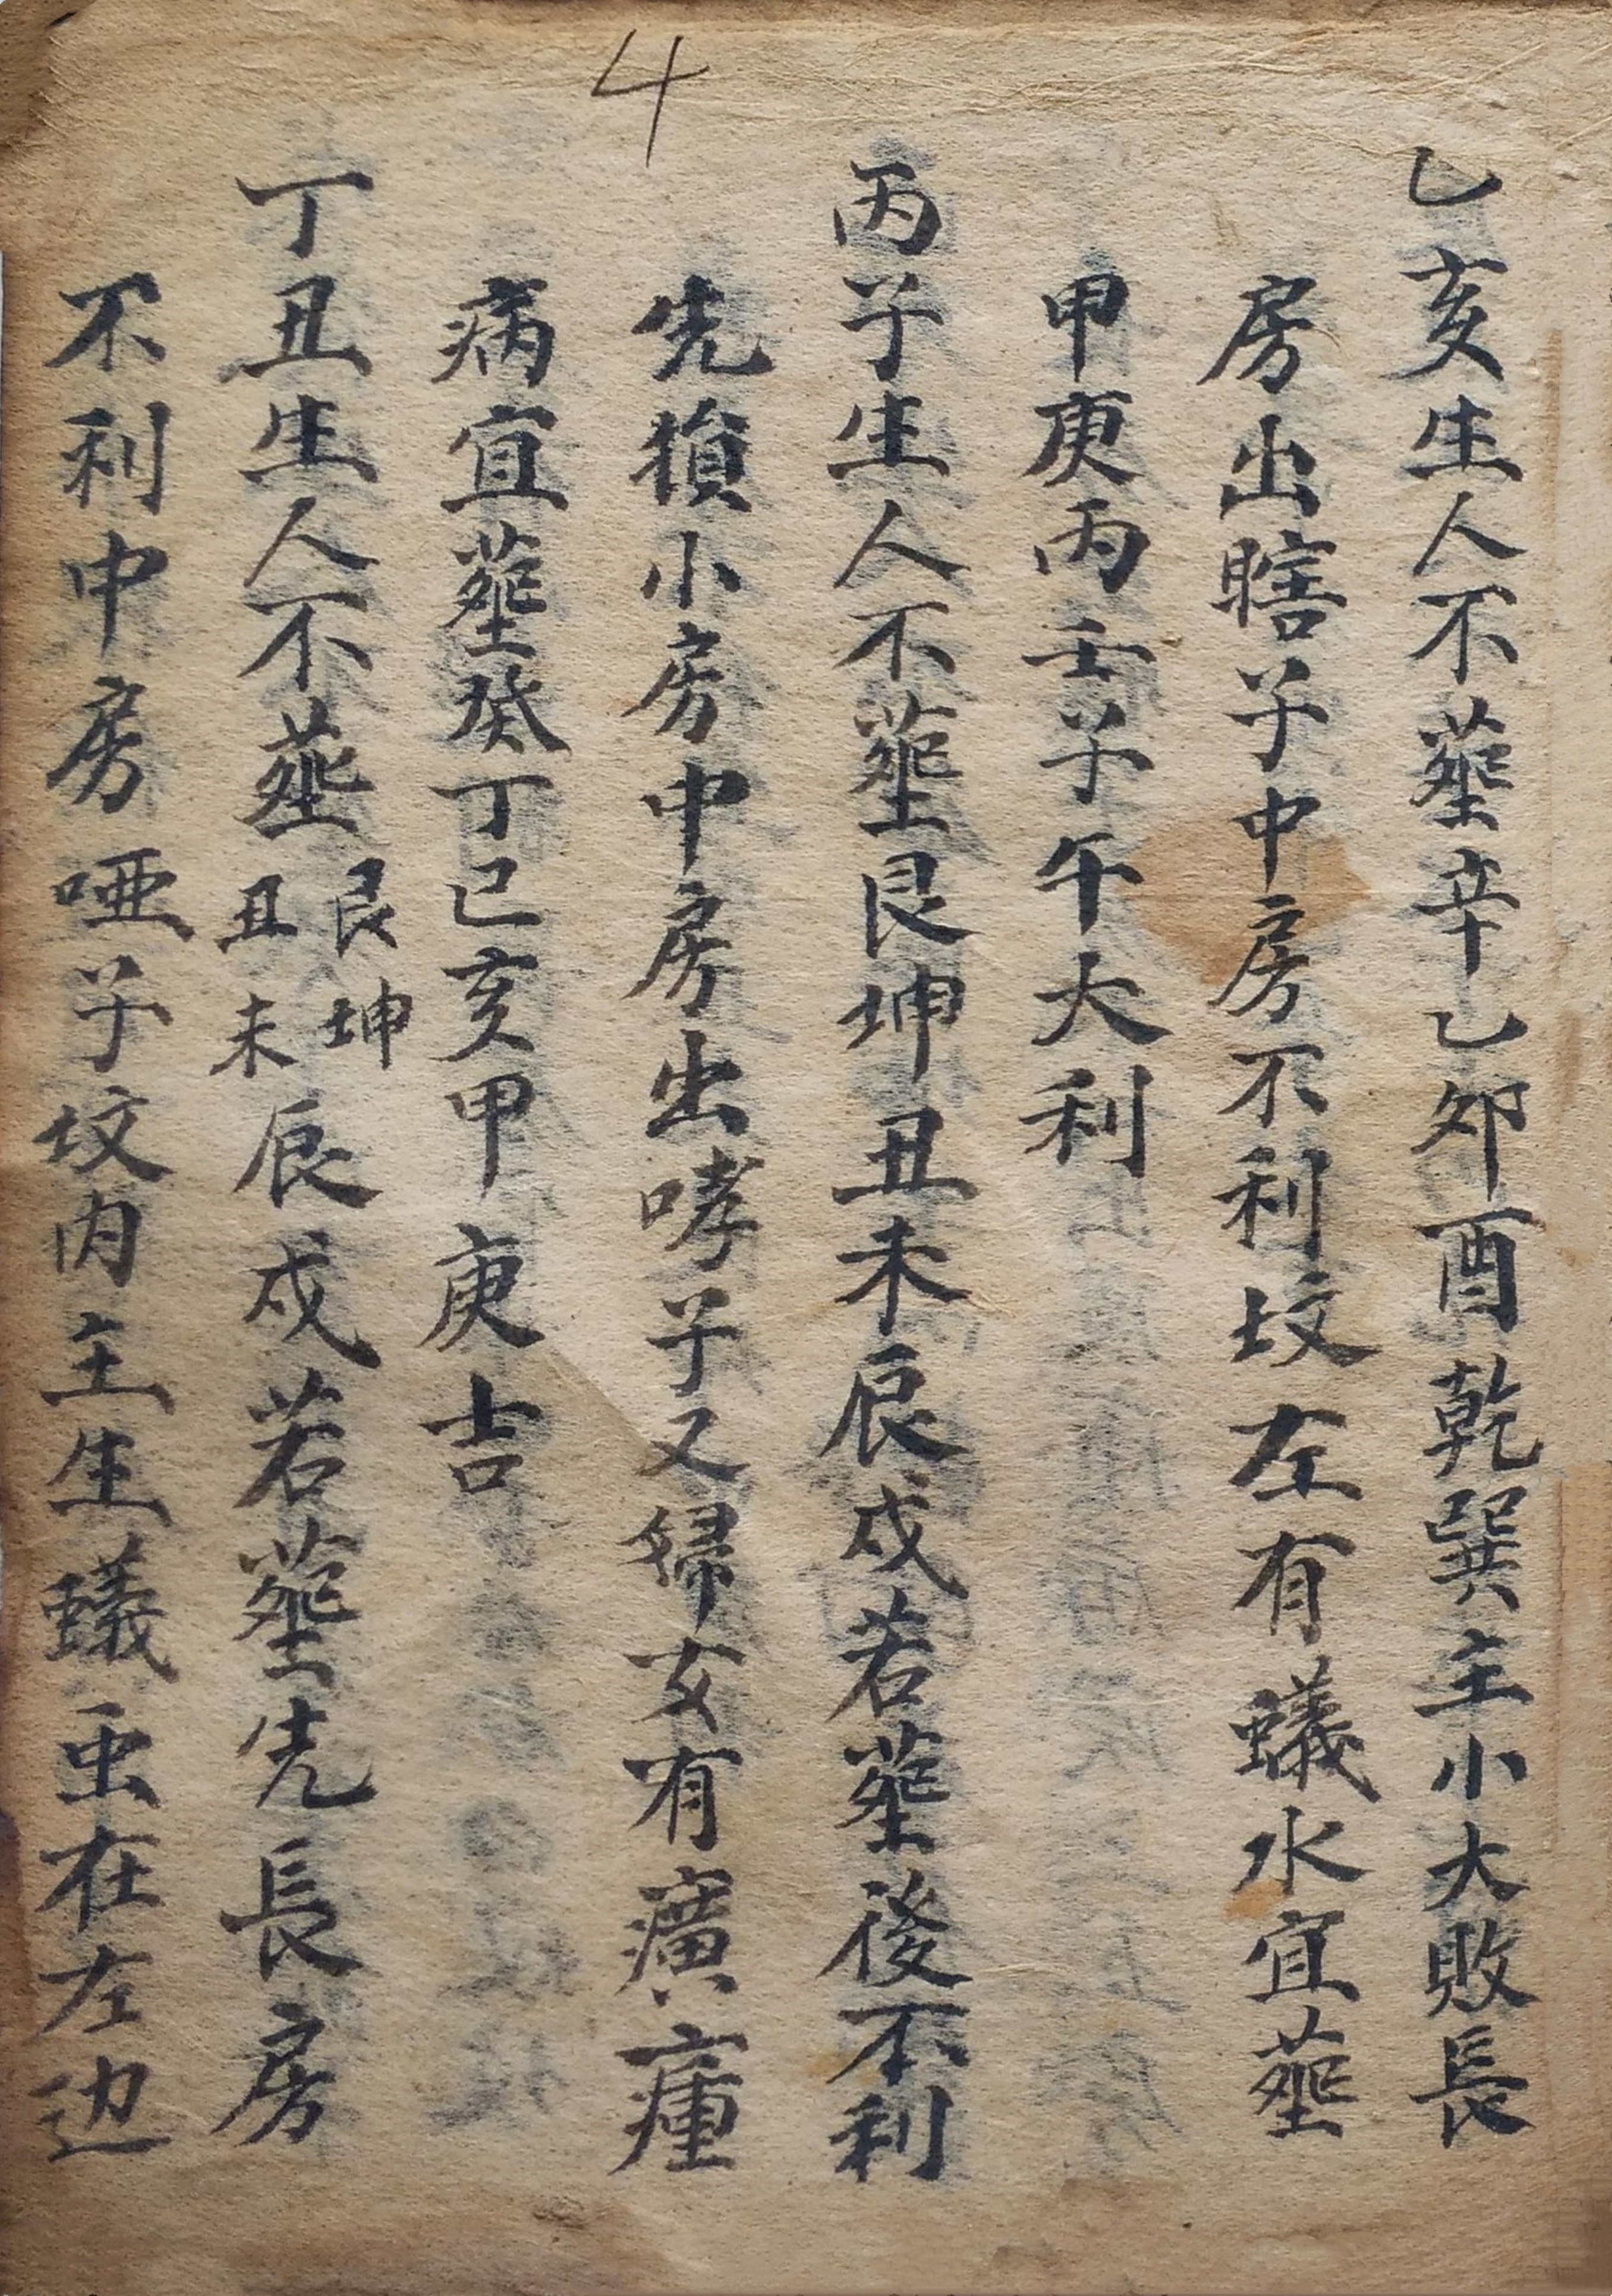 4
乙亥生人不塟辛乙卯酉乾巽主小大敗長
房出瞎子中房不利坟左有蟻水宜塟
甲庚丙壬子午大利
丙子生人不塟艮坤丑未辰戌若塟後不利
先損小房中房出哮子又婦女有癀瘇
病宜塟癸丁巳亥甲庚吉
丁丑生人不塟艮坤丑未辰戌若塟先長房
不利中房啞子坟内主生蟻虫在左边